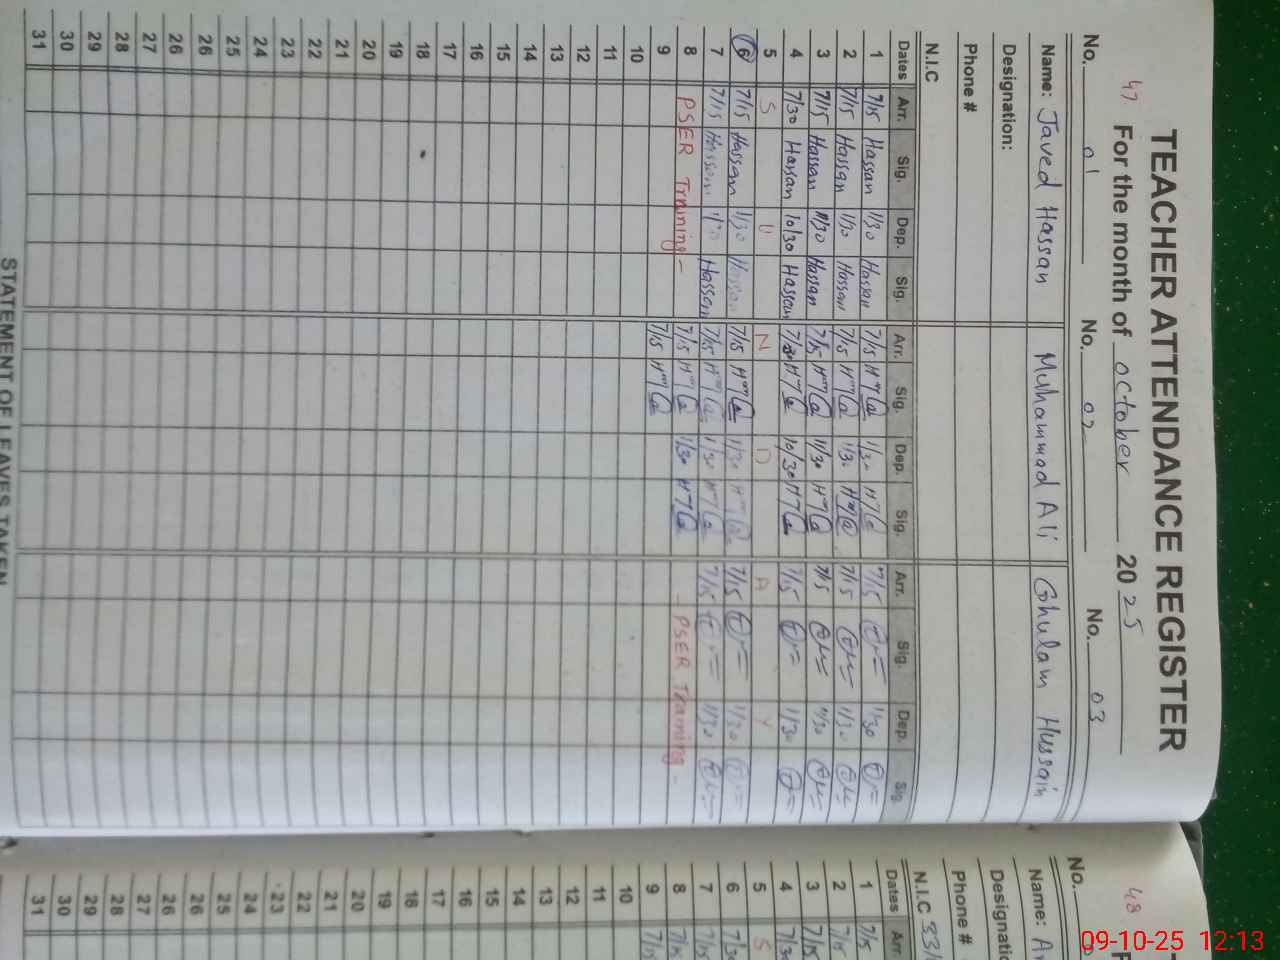 TEACHER ATTENDANCE REGISTER
47 For the month of october 2025
No. 01 No. 02 No. 03
Name: Javed Hassan Muhammad Ali Ghulam Hussain
Designation:
Phone #
N.I.C
Dates Arr. Sig. Dep. Sig. Arr. Sig. Dep. Sig. Arr. Sig. Dep. Sig.
1 7/15 Hassan 1/30 Hassan 7/15 1/30 7/15 1/30
2 7/15 Hassan 1/30 Hassan 7/15 1/30 7/15 1/30
3 7/15 Hassan 11/30 Hassan 7/15 11/30 7/15 11/30
4 7/30 Hassan 10/30 Hassan 7/30 10/30 7/15 11/30
5 S U N D A Y
6 7/15 Hassan 1/30 Hassan 7/15 1/30 7/15 1/30
7 7/15 Hassan 1/30 Hassan 7/15 1/30 7/15 1/30
8 PSER Training - 7/15 1/30 PSER Training -
9 7/15
10
11
12
13
14
15
16
17
18
19
20
21
22
23
24
25
26
26
27
28
29
30
31
STATEMENT OF LEAVES TAKEN
48
No.
Name:
Designatio
Phone #
N.I.C
Dates Arr
1 7/15
2 7/15
3 7/15
4 7/30
5 S
6 7/30
7 7/15
8 7/15
9 7/15
10
11
12
13
14
15
16
17
18
19
20
21
22
23
24
25
26
26
27
28
29
30
31
09-10-25 12:13